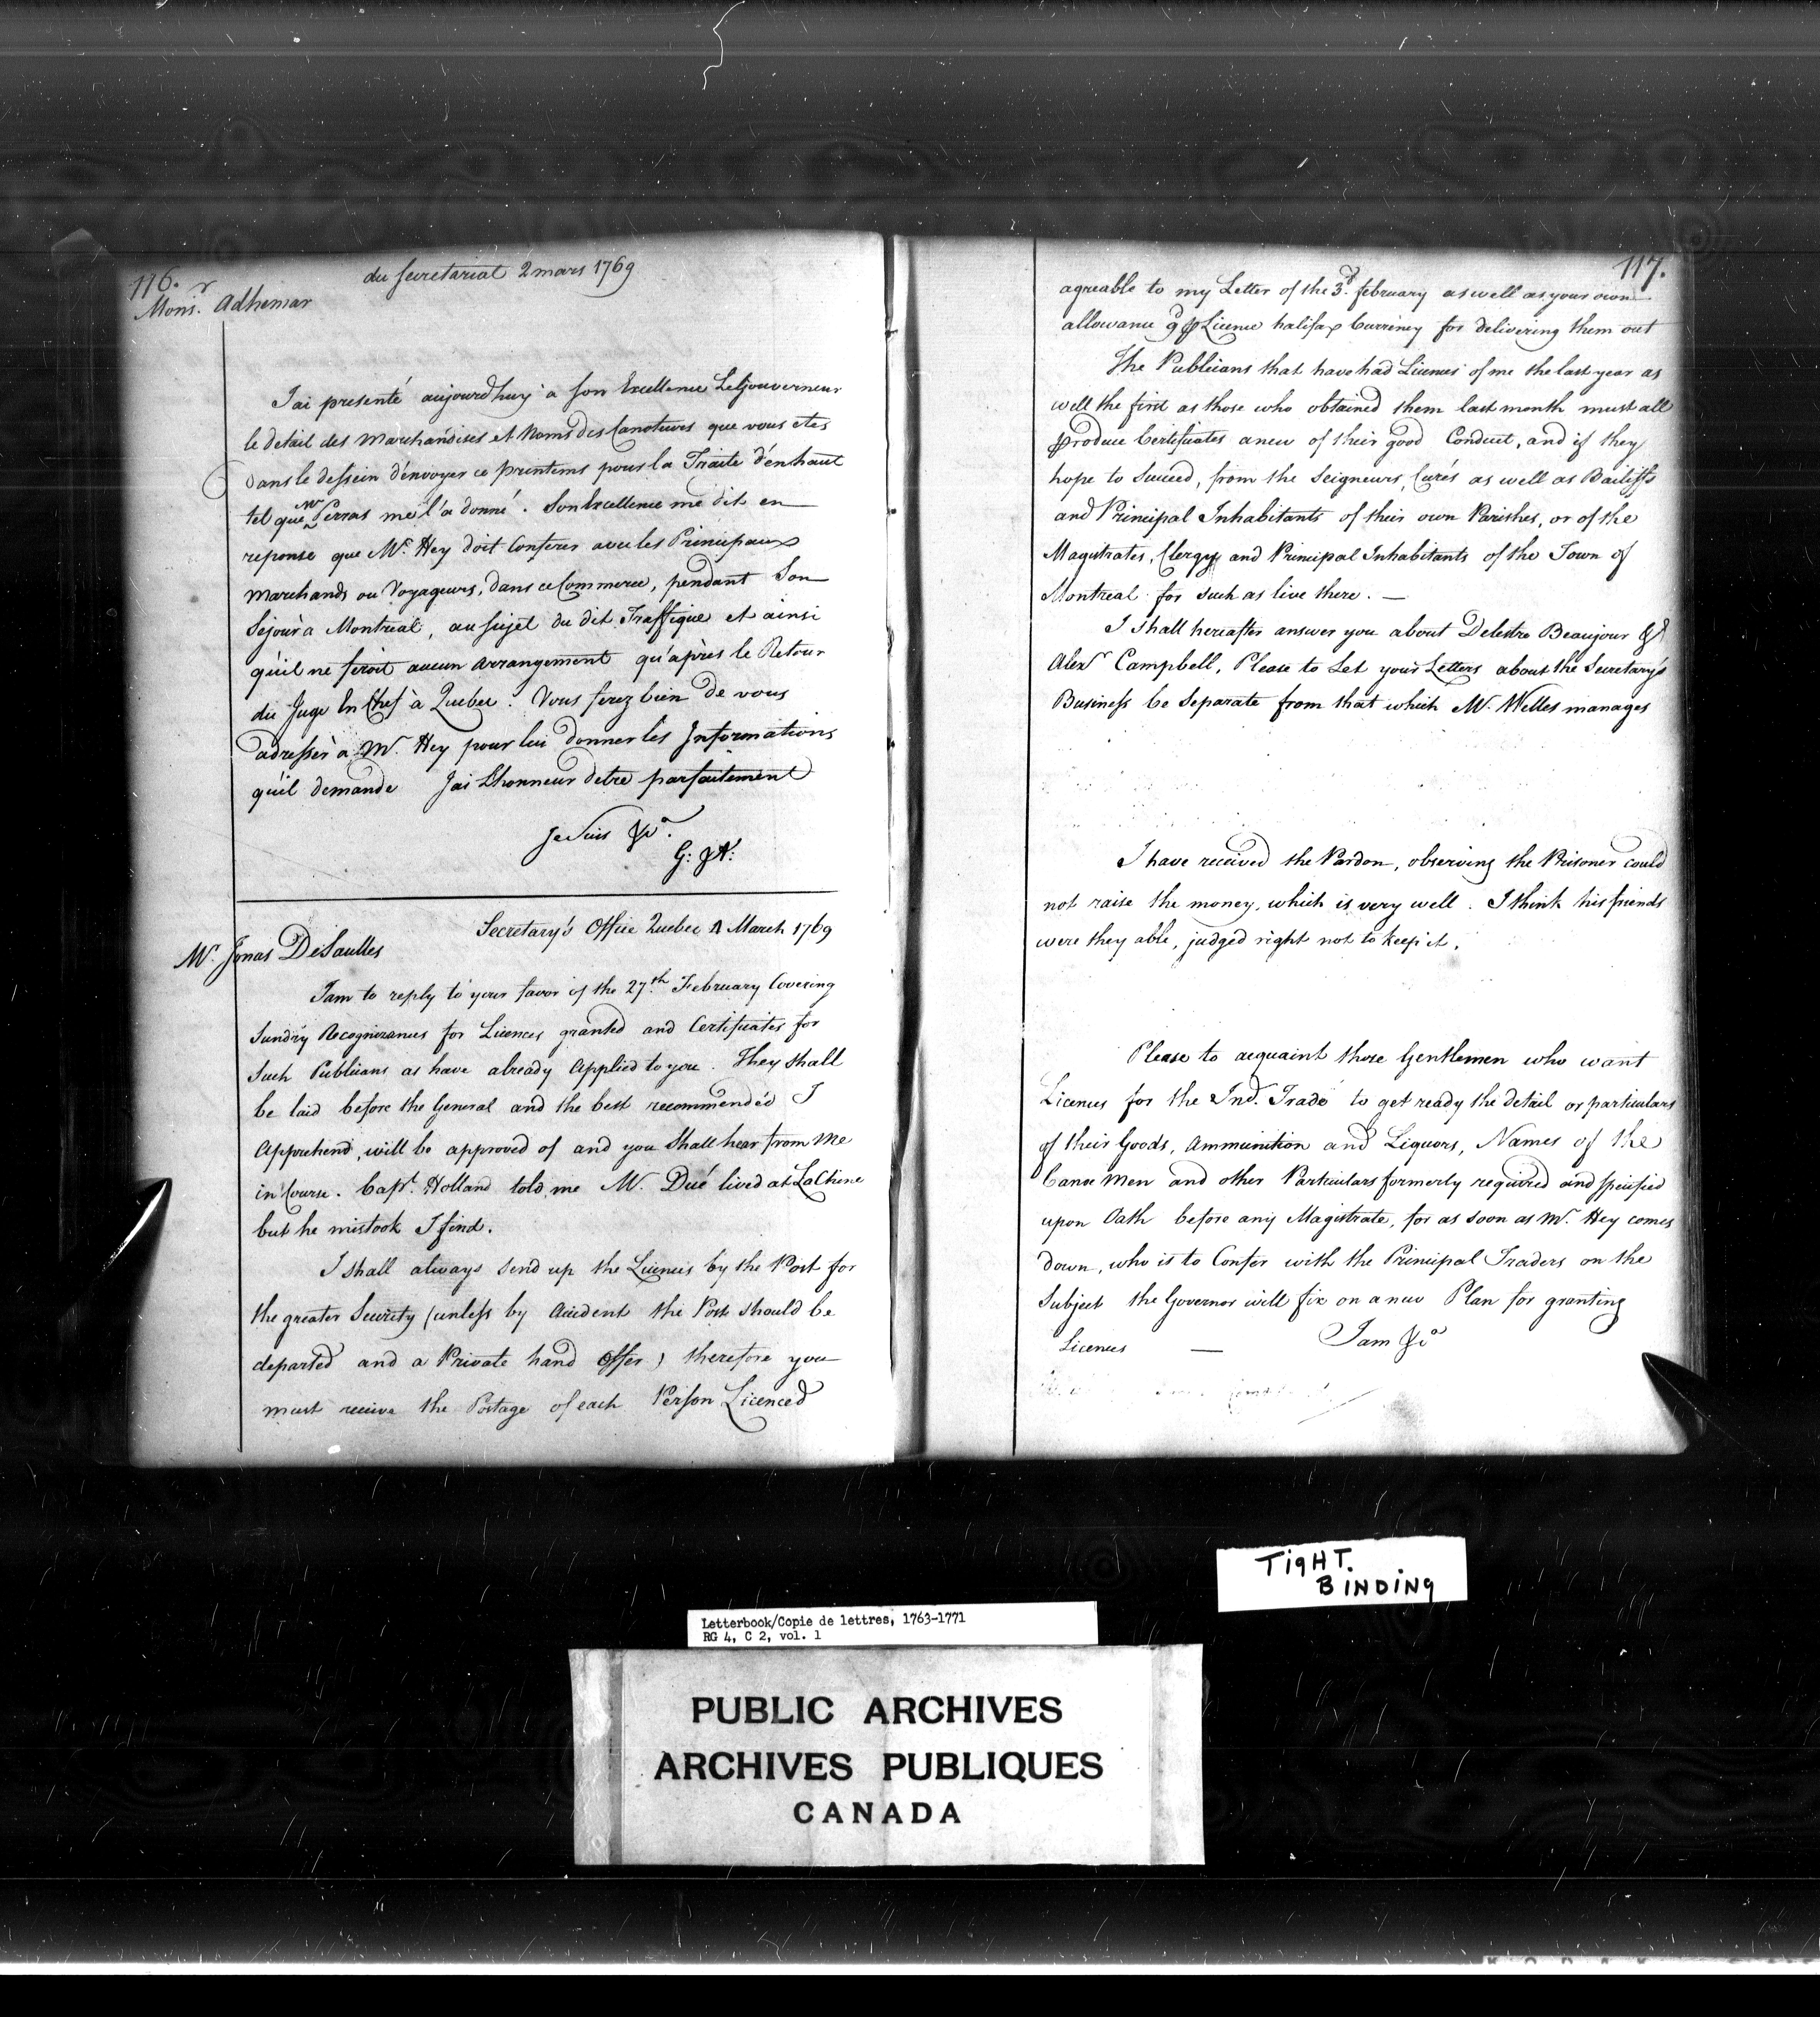 116.
du secretariat 2 mars 1769
Monsr. Adhemar
J'ai presenté aujourdhuy a son Excellence Le Gouverneur
le detail des Marchandises et Noms des Canoteurs que vous etes
dans le dessein d'envoyer ce printems pour la Traite d'enhaut
tel que Mr Perras me l'a donné. Son Excellence me dit en
reponse que Mr. Hey doit Conferer avec les Principaux
Marchands ou Voyageurs, dans ce Commerce, pendant Son
Sejour a Montreal, au sujet du dit Traffique et ainsi
qu'il ne feroit aucun Arrangement qu'après le Retour
du Juge En Chef à Quebec. Vous ferez bien de vous
adresser à Mr. Hey pour lui donner les Informations
qu'il demande J'ai L'honneur d'etre parfaitement
Je Suis &ca.
G: JA:
Secretary's Office Quebec 2 March 1769
Mr. Jonas DeSaulles
I am to reply to your favor of the 27th. February Covering
Sundry Recognizances for Licences granted and Certificates for
Such Publicans as have already Applied to you. They shall
be laid before the General and the best recommended I
Apprehend, will be approved of and you Shall hear from Me
in Course. Capt. Holland told me Mr. Dué lived at La Chine
but he mistook I find.
I shall always send up the Licences by the Post for
the greater Security (unless by Accident the Post should be
departed and a Private hand Offer) therefore you
must receive the Postage of each Person Licenced
117.
agreable to my Letter of the 3d. february as well as your own
allowance 9d p Licence halifax Currency for delivering them out
The Publicans that have had Licences of me the last year as
well the first as those who obtained them last month must all
produce Certificates anew of their good Conduct, and if they
hope to Succeed, from the Seigneurs, Curés as well as Bailiffs
and Principal Inhabitants of their own Parishes, or of the
Magistrates, Clergy and Principal Inhabitants of the Town of
Montreal for such as live there. —
I shall hereafter answer you about Delestre Beaujour &
Alexr Campbell, Please to Let your Letters about the Secretary's
Business be Separate from that which Mr. Welles manages
I have received the Pardon, observing the Prisoner could
not raise the money, which is very well. I think his friends
were they able, judged right not to keep it.
Please to acquaint those Gentlemen who want
Licences for the Ind. Trade to get ready the detail or particulars
of their Goods, Ammunition and Liquors, Names of the
Canoe Men and other Particulars formerly required and specified
upon Oath before any Magistrate, for as soon as Mr. Hey comes
down, who is to Confer with the Principal Traders on the
Subject the Governor will fix on a new Plan for granting
Licences — I am &ca
TIGHT.
BINDING
Letterbook/Copie de lettres, 1763-1771
RG 4, C 2, vol. 1
PUBLIC ARCHIVES
ARCHIVES PUBLIQUES
CANADA